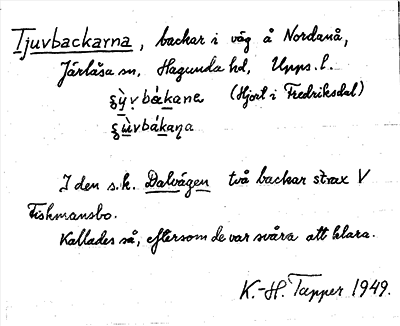 Tjuvbackarna, backar i väg å Nordanå,
Järlåsa sn, Hagunda hd, Upps. l.
(Hjort i Fredriksdal)
I den s.k. Dalvägen två backar strax V
Fiskmansbo.
Kallades så, eftersom de var svåra att klara.
K.-H. Tapper 1949.